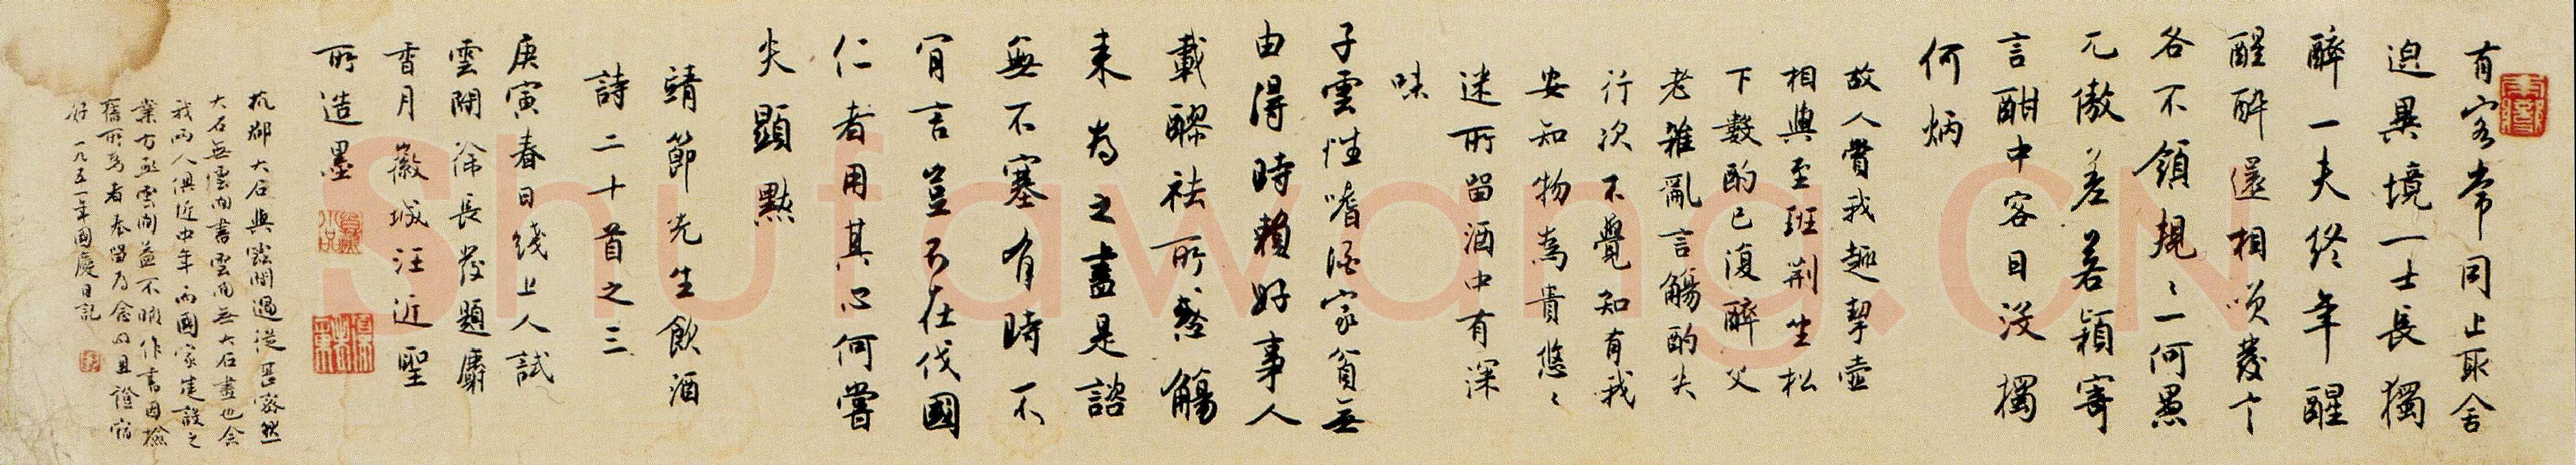 有客常同止取舍
迥異境一士長獨
醉一夫終年醒
醒醉還相唉發言
各不領規〻一何愚
兀傲差若穎寄
言酣中客日沒獨
何炳
故人賞我趣挈壺
相與至班荆坐松
下數酌已復醉父
老雜亂言觴酌失
行次不覺知有我
安知物為貴悠〻
迷所留酒中有深
味
子雲性嗜酒家貧無
由得時賴好事人
載醪祛所惑觴
来為之盡是諮
無不塞有時不
肎言豈不在伐國
仁者用其心何嘗
失顯默
靖節先生飲酒
詩二十首之三
庚寅春日綫上人試
雲開徐長發題廎
香月徽城汪近聖
所造墨
杭郡大石與雲間過從甚密然
大石無雲間書雲間無大石畫也今
我兩人俱近中年而國家建設之
業方亟雲間益不暇作書因檢
舊所為者奉留乃念四且證宿
好一九五一年國慶日記
Shufawang.CN